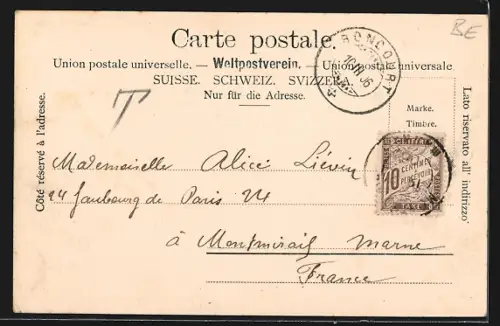 Carte postale.
BE
Union postale universelle. — Weltpostverein. — Union postale universale
SUISSE. SCHWEIZ. SVIZZERA
Nur für die Adresse.
BONCOURT
T
Marke.
Timbre.
Côté réservé à l'adresse.
Lato riservato all' indirizzo
Mademoiselle Alice Liévin
24 faubourg de Paris 24
à Montmirail Marne
France
10
CENTIMES
À PERCEVOIR
TAXE